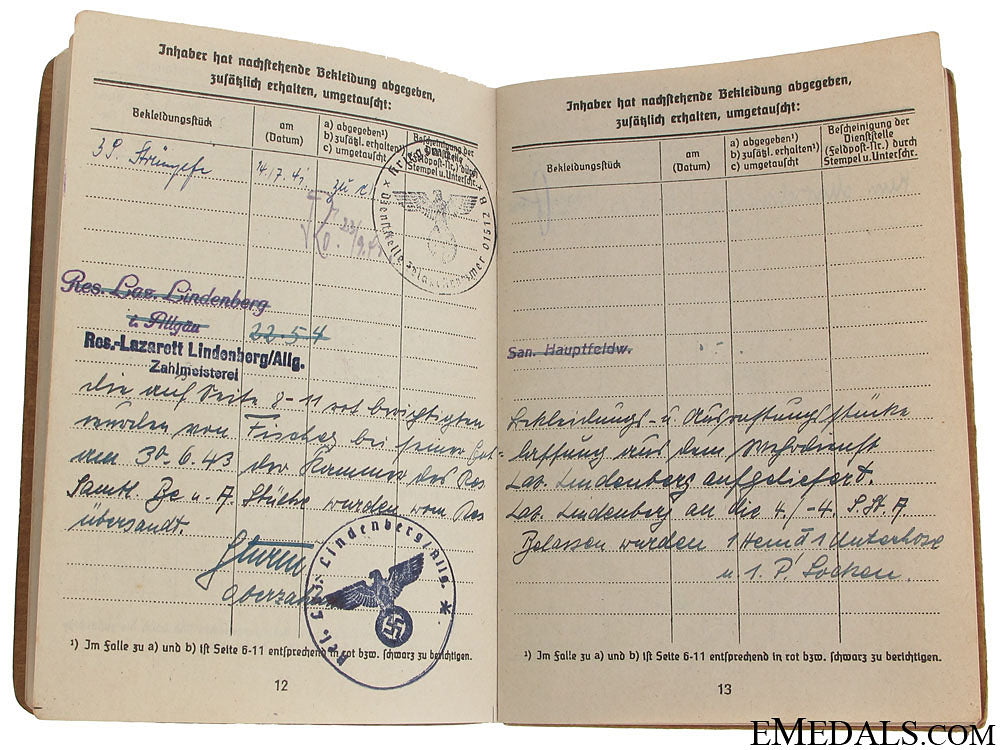 Inhaber hat nachstehende Bekleidung abgegeben,
zusätzlich erhalten, umgetauscht:
Bekleidungsstück
am
(Datum)
a) abgegeben¹)
b) zusätzl. erhalten¹)
c) umgetauscht
Bescheinigung der
Dienststelle
(Feldpost-Nr.) durch
Stempel u. Unterschr.
3 P. Strümpfe 14.7.41 zu c
Dienststelle Feldpostnummer 01512 B
Res. Laz. Lindenberg
i. Allgäu 22.5.4
Res.-Lazarett Lindenberg/Allg.
Zahlmeisterei
die auf Seite 8-11 rot berichtigten
wurden von Fischer bei seiner Ent-
am 30.6.43 der Kammer des Res
Sämtl. Be u. A. Stücke wurden vom Res
übersandt.
Sturm
Oberzahlm
Res. Laz. Lindenberg/Allg.
¹) Im Falle zu a) und b) ist Seite 6-11 entsprechend in rot bzw. schwarz zu berichtigen.
12
Inhaber hat nachstehende Bekleidung abgegeben,
zusätzlich erhalten, umgetauscht:
Bekleidungsstück
am
(Datum)
a) abgegeben¹)
b) zusätzl. erhalten¹)
c) umgetauscht
Bescheinigung der
Dienststelle
(Feldpost-Nr.) durch
Stempel u. Unterschr.
San. Hauptfeldw.
Bekleidungs- u. Ausrüstungsstücke
lassung aus dem Wehrdienst
Laz. Lindenberg aufgeliefert.
Laz. Lindenberg an die 4./-4.
Belassen wurden 1 Hemd 1 Unterhose
u. 1. P. Socken.
¹) Im Falle zu a) und b) ist Seite 6-11 entsprechend in rot bzw. schwarz zu berichtigen.
13
EMEDALS.COM